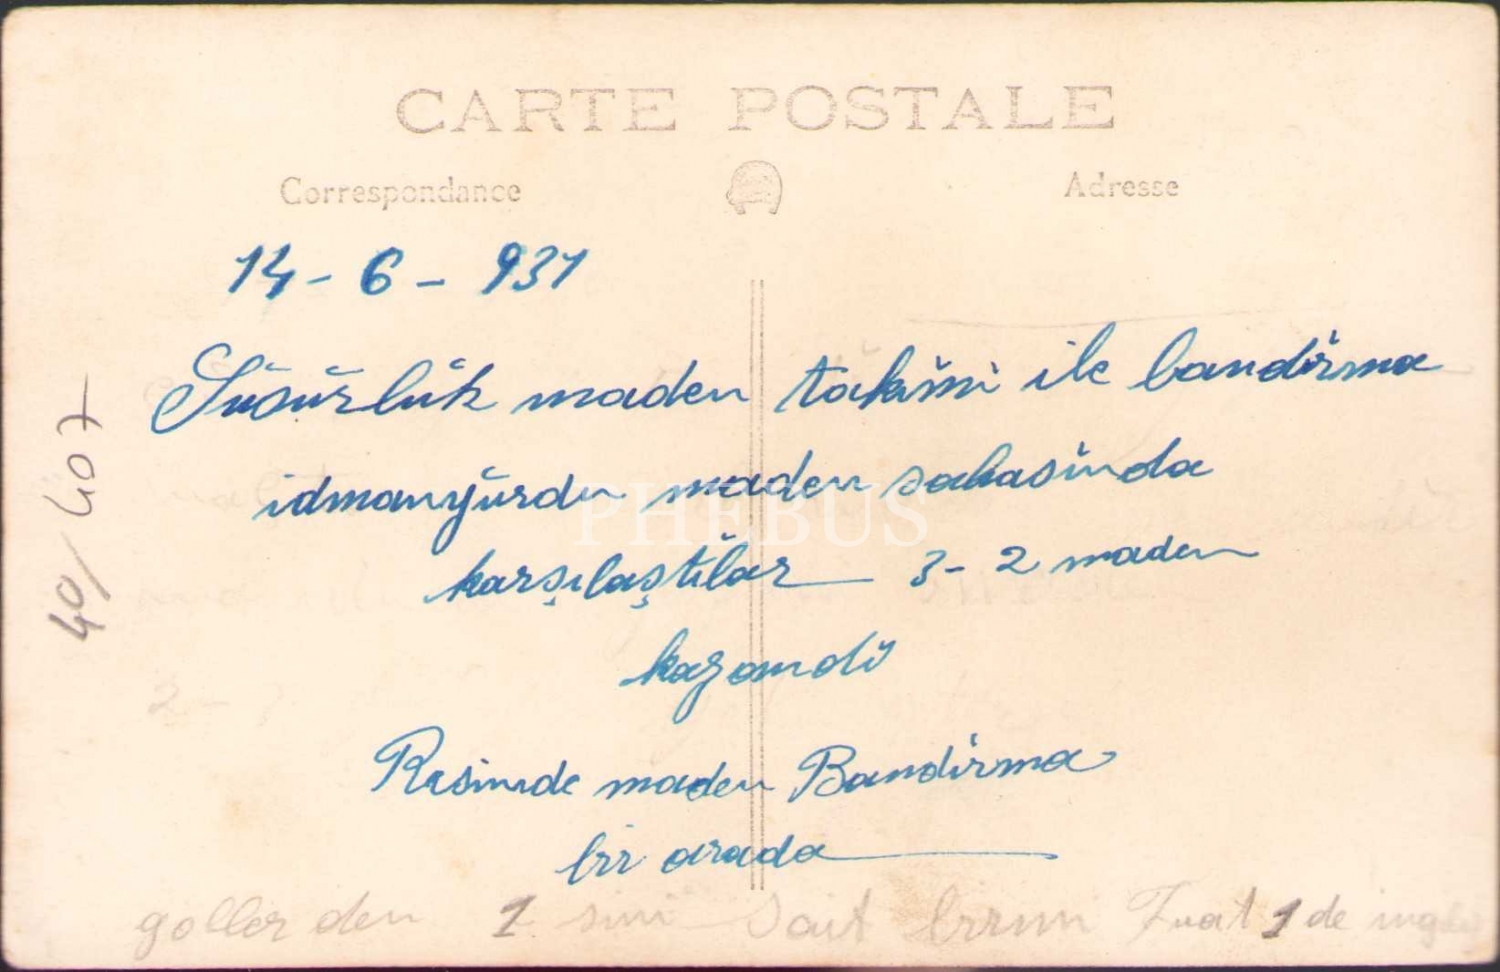 CARTE POSTALE
Correspondance
Adresse
14-6-931
Süsürlük maden takimi ile bandirma
idmanyurdu maden sahasinda
karşılaştılar 3-2 maden
kazandi
Resimde maden Bandirma
bir arada
goller den 1 sini Sait birini Fuat 1 de
40/407
PHEBUS